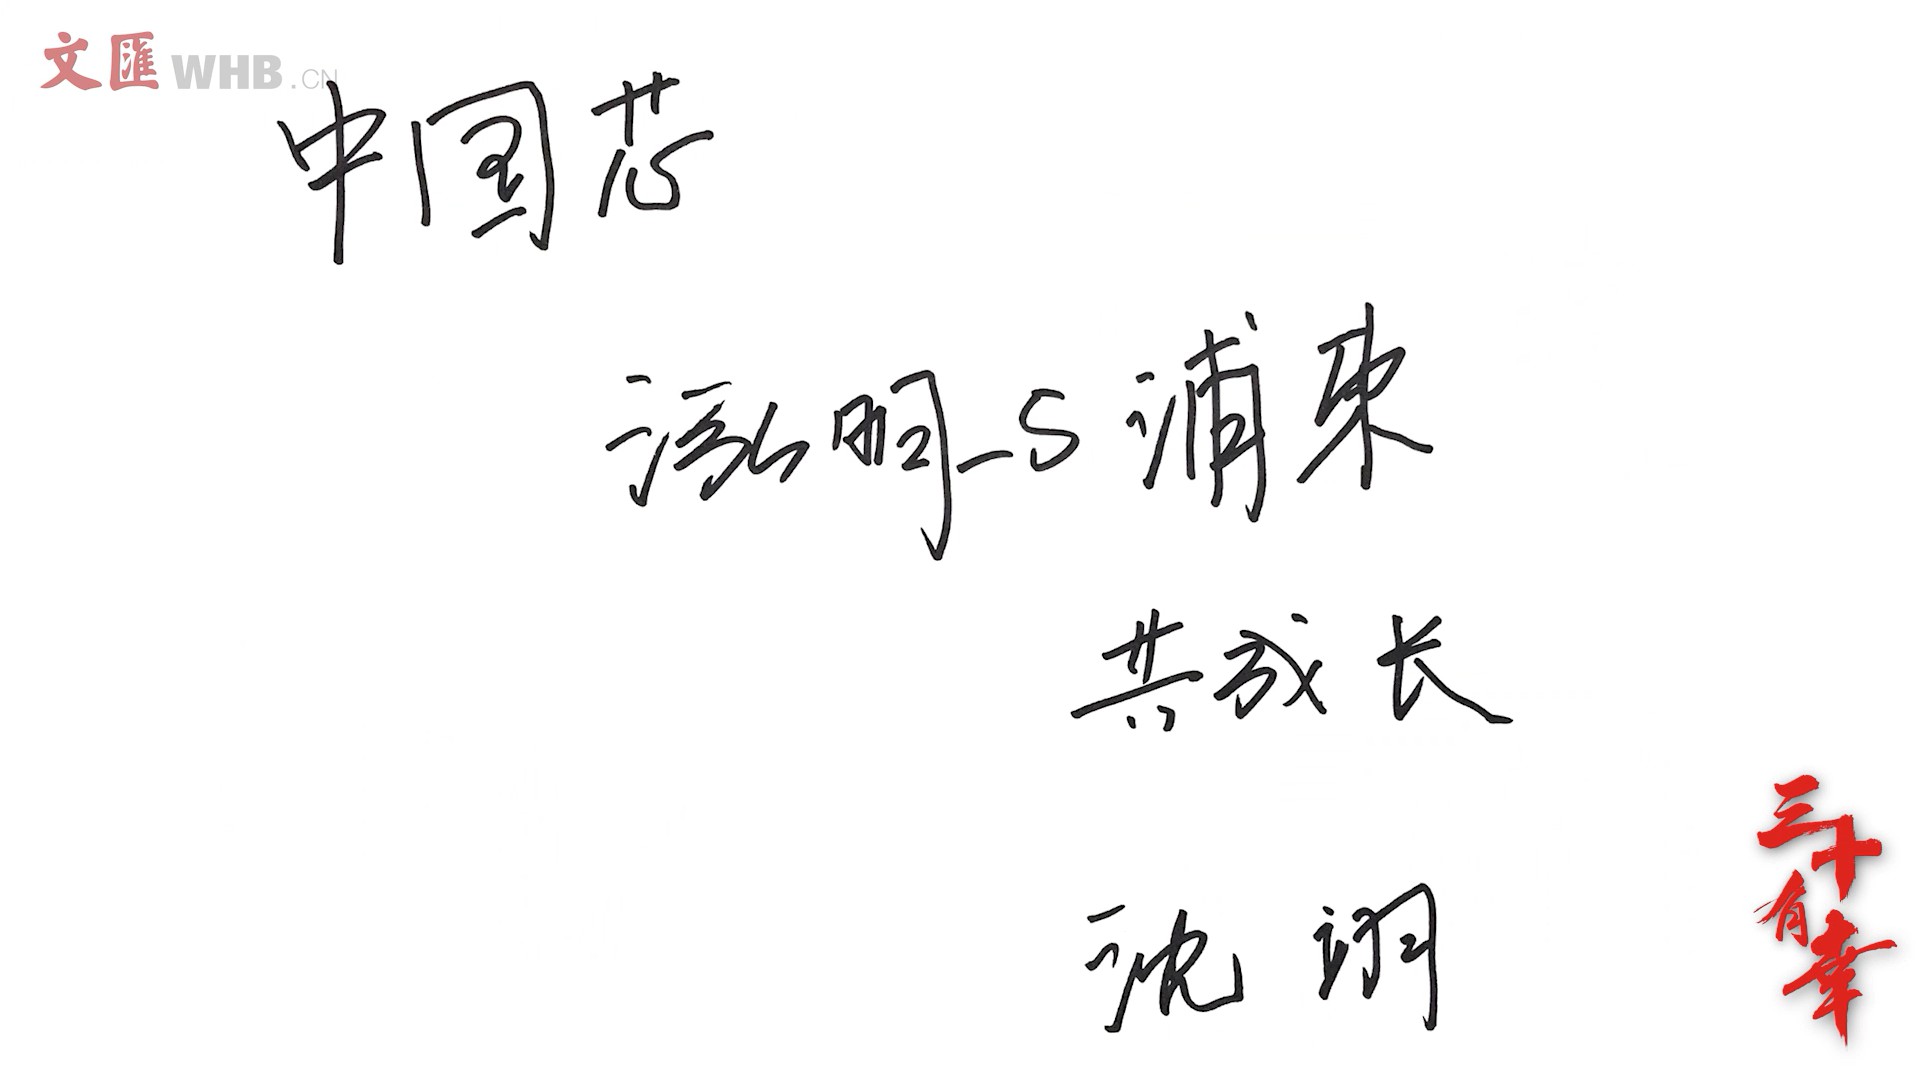 文匯WHB.CN
中国芯
泓明与浦东
共成长
沈翊
三十有幸